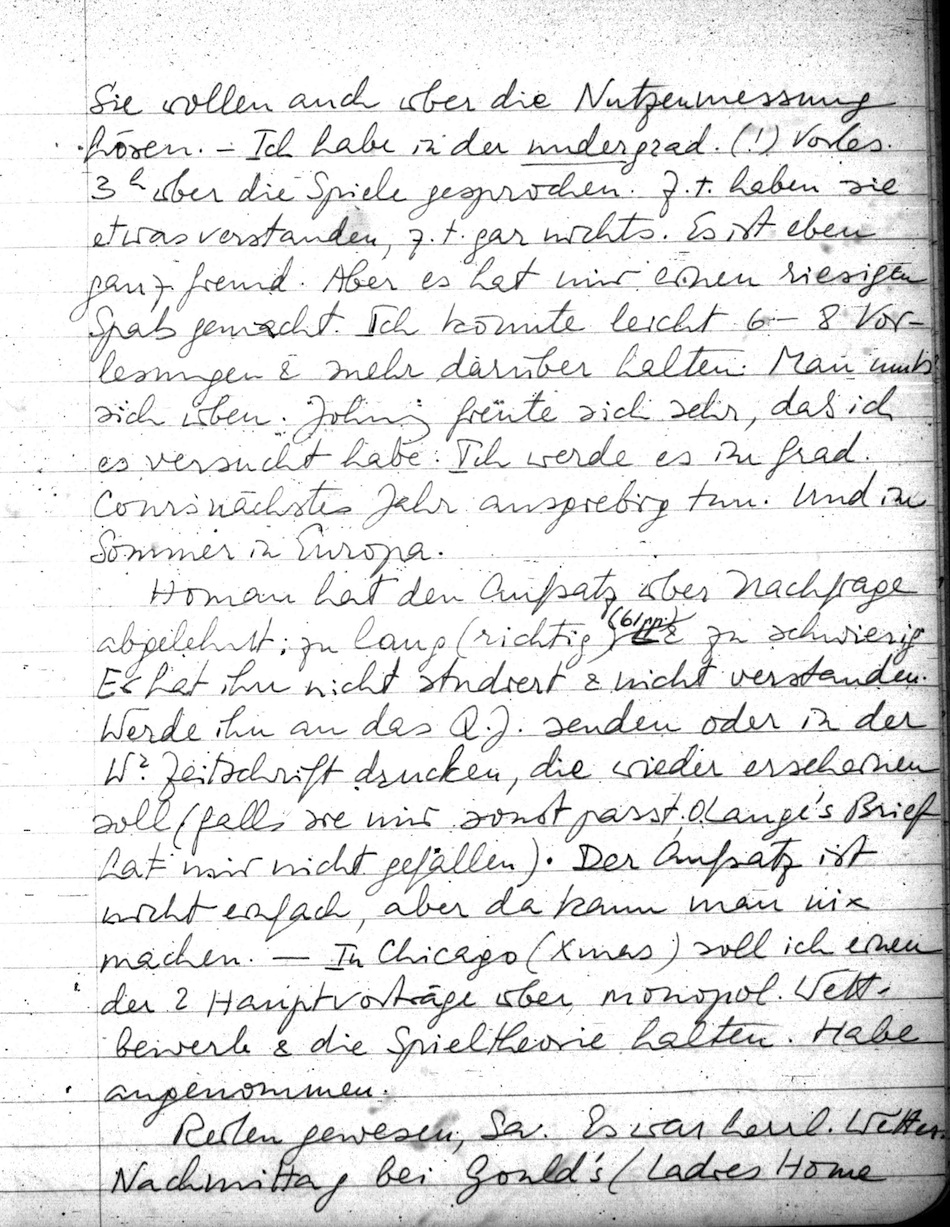 Sie wollen auch über die Nutzenmessung
hören. – Ich habe in der undergrad. (!) Vorles.
3h über die Spiele gesprochen. Z.t. haben sie
etwas verstanden, z.t. gar nichts. Es ist eben
ganz fremd. Aber es hat mir einen riesigen
Spaß gemacht. Ich könnte leicht 6 – 8 Vor-
lesungen & mehr darüber halten. Man muß
sich üben. Johnny freute sich sehr, daß ich
es versucht habe. Ich werde es im Grad.
Cours nächstes Jahr ausgiebig tun. Und im
Sommer in Europa.
Homan hat den Aufsatz über Nachfrage
abgelehnt: zu lang (richtig) (61pp) & zu schwierig
Er hat ihn nicht studiert & nicht verstanden.
Werde ihn an das Q.J. senden oder in der
Wr. Zeitschrift drucken, die wieder erscheinen
soll (falls sie mir sonst passt. O Lange's Brief
hat mir nicht gefallen). Der Aufsatz ist
nicht einfach, aber da kann man nix
machen. — In Chicago (Xmas) soll ich einen
der 2 Hauptvorträge über monopol. Wett-
bewerb & die Spieltheorie halten. Habe
angenommen.
Reiten gewesen, Sa. Es war herrl. Wetter.
Nachmittag bei Gould's (Ladies Home